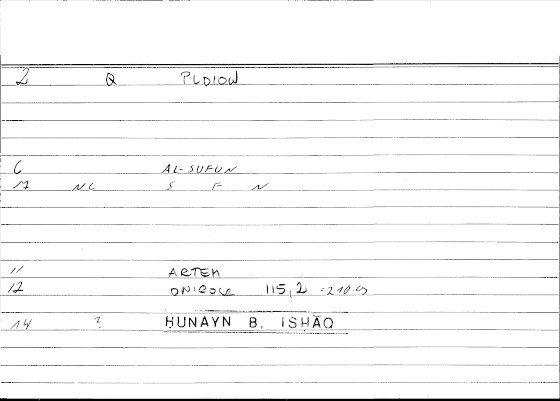 2 Q PLOIOW
6 AL-SUFUN
17 NC S F N
11 ARTEM
12 ONIROCR 115,2 =210.9
14 ? HUNAYN B. ISHĀQ